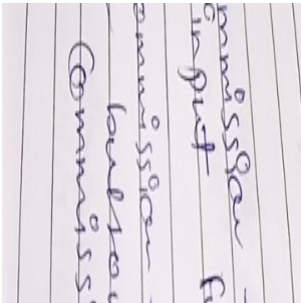 mmission -
input f
ommission -
Commiss